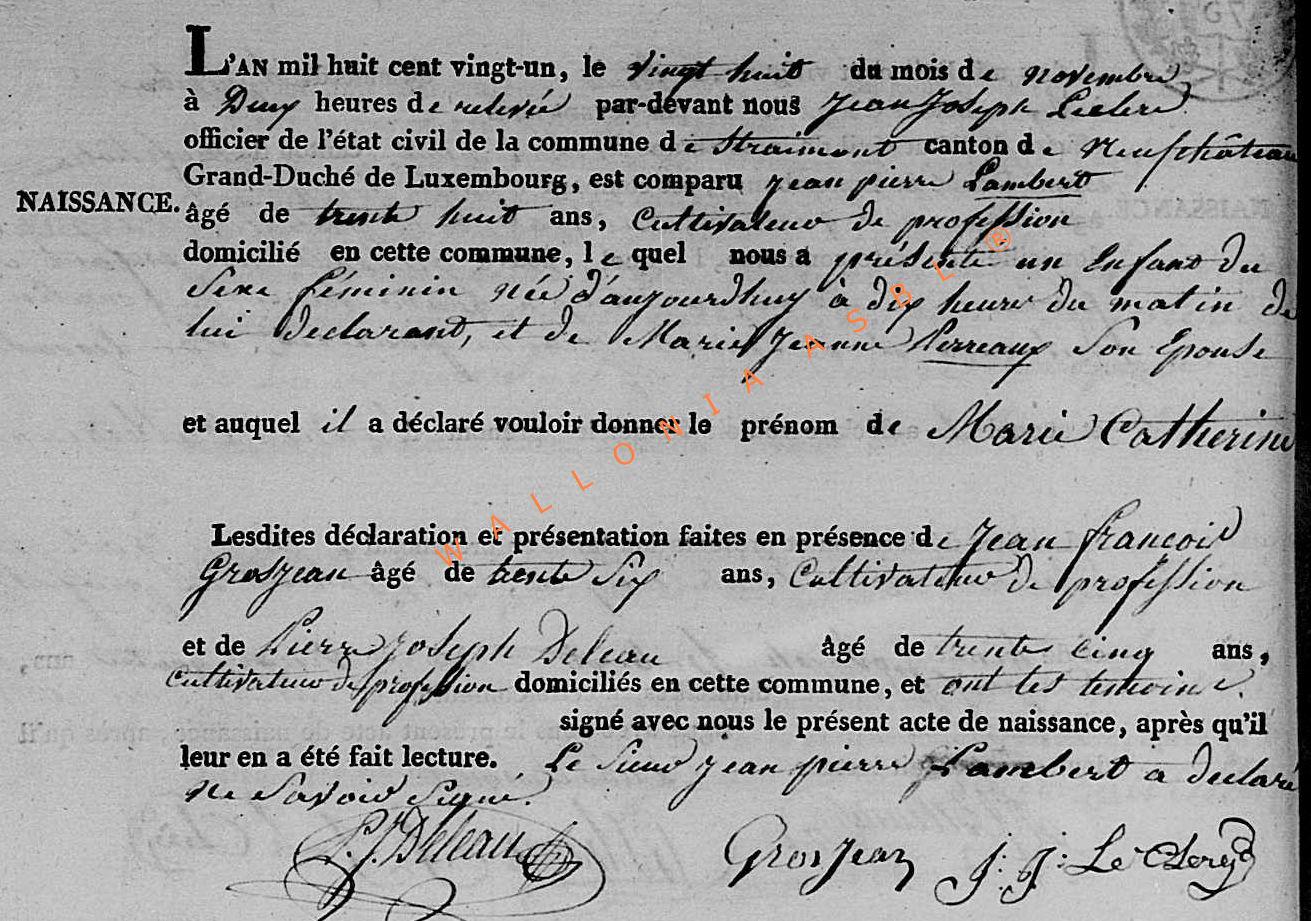 L'AN mil huit cent vingt-un, le vingt huit du mois de novembre
à Deux heures de relevée par-devant nous Jean Joseph Leclere
officier de l'état civil de la commune de Straimont canton de Neufchâteau
Grand-Duché de Luxembourg, est comparu jean pierre Lambert
NAISSANCE. âgé de trente huit ans, Cultivateur de profession
domicilié en cette commune, le quel nous a présenté un Enfant du
Sexe féminin née d'aujourdhuy à dix heure du matin de
lui declarant, et de Marie Jeanne Perreaux Son Epouse
et auquel il a déclaré vouloir donner le prénom de Marie Catherine
Lesdites déclaration et présentation faites en présence de Jean françois
Grosjean âgé de trente Six ans, Cultivateur de profession
et de Pierre Joseph Deleau âgé de trente cinq ans,
Cultivateur de profession domiciliés en cette commune, et ont les temoins
signé avec nous le présent acte de naissance, après qu'il
leur en a été fait lecture. Le Sieur jean pierre Lambert a declaré
ne Savoir Signé.
P. J. Deleau GrosJean J: J: Le Clere
WALLONIA ASBL ®